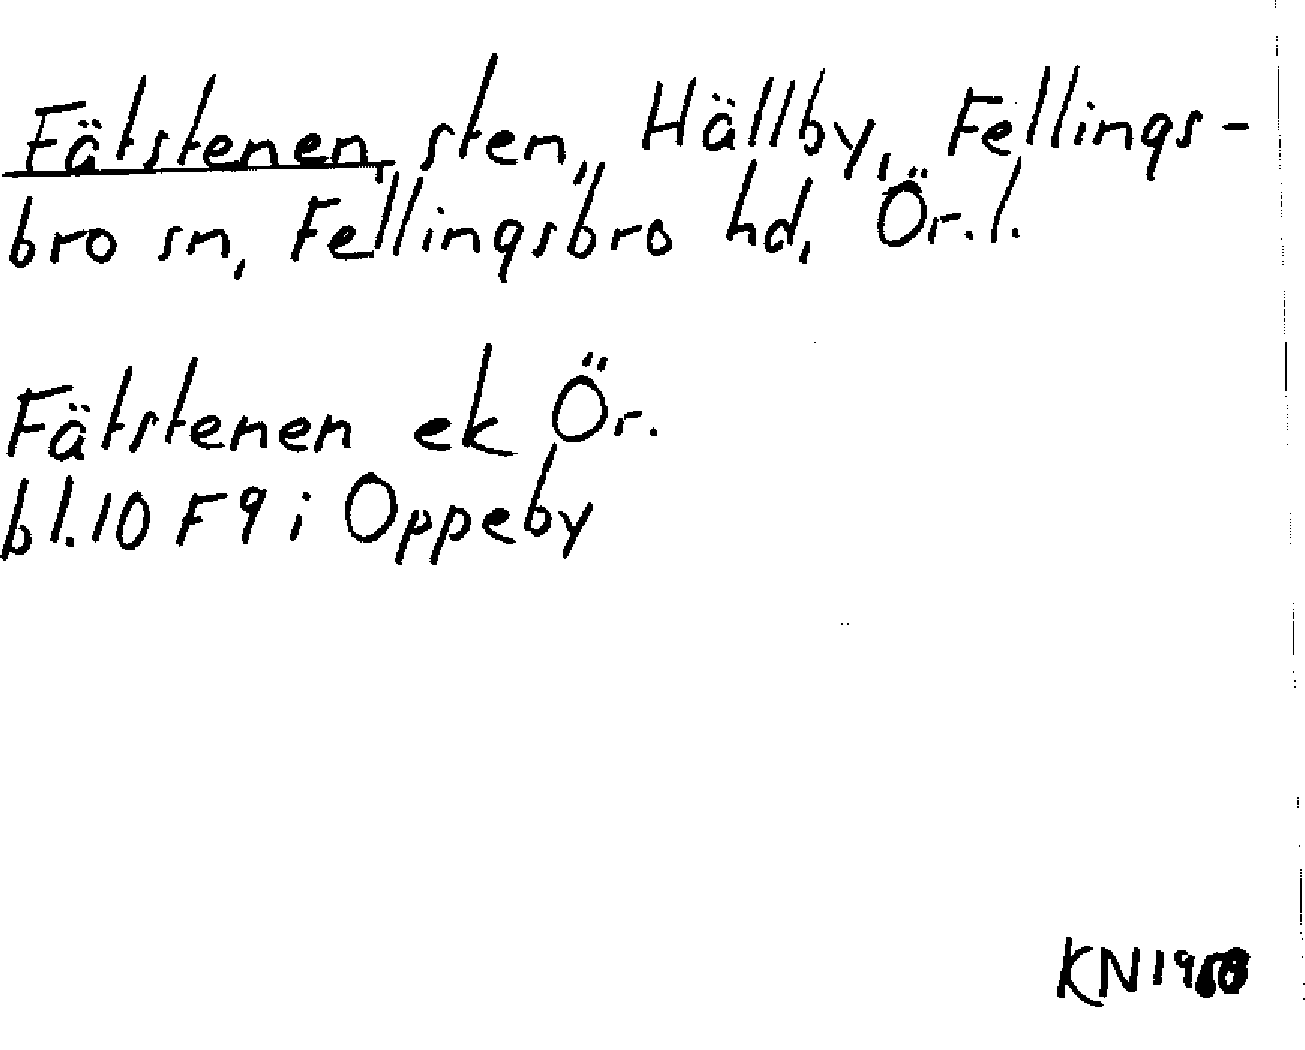 Fätstenen, sten, Hällby, Fellings-
bro sn, Fellingsbro hd, Ör.l.
Fätstenen ek Ör.
bl.10 F9 i Oppeby
KN